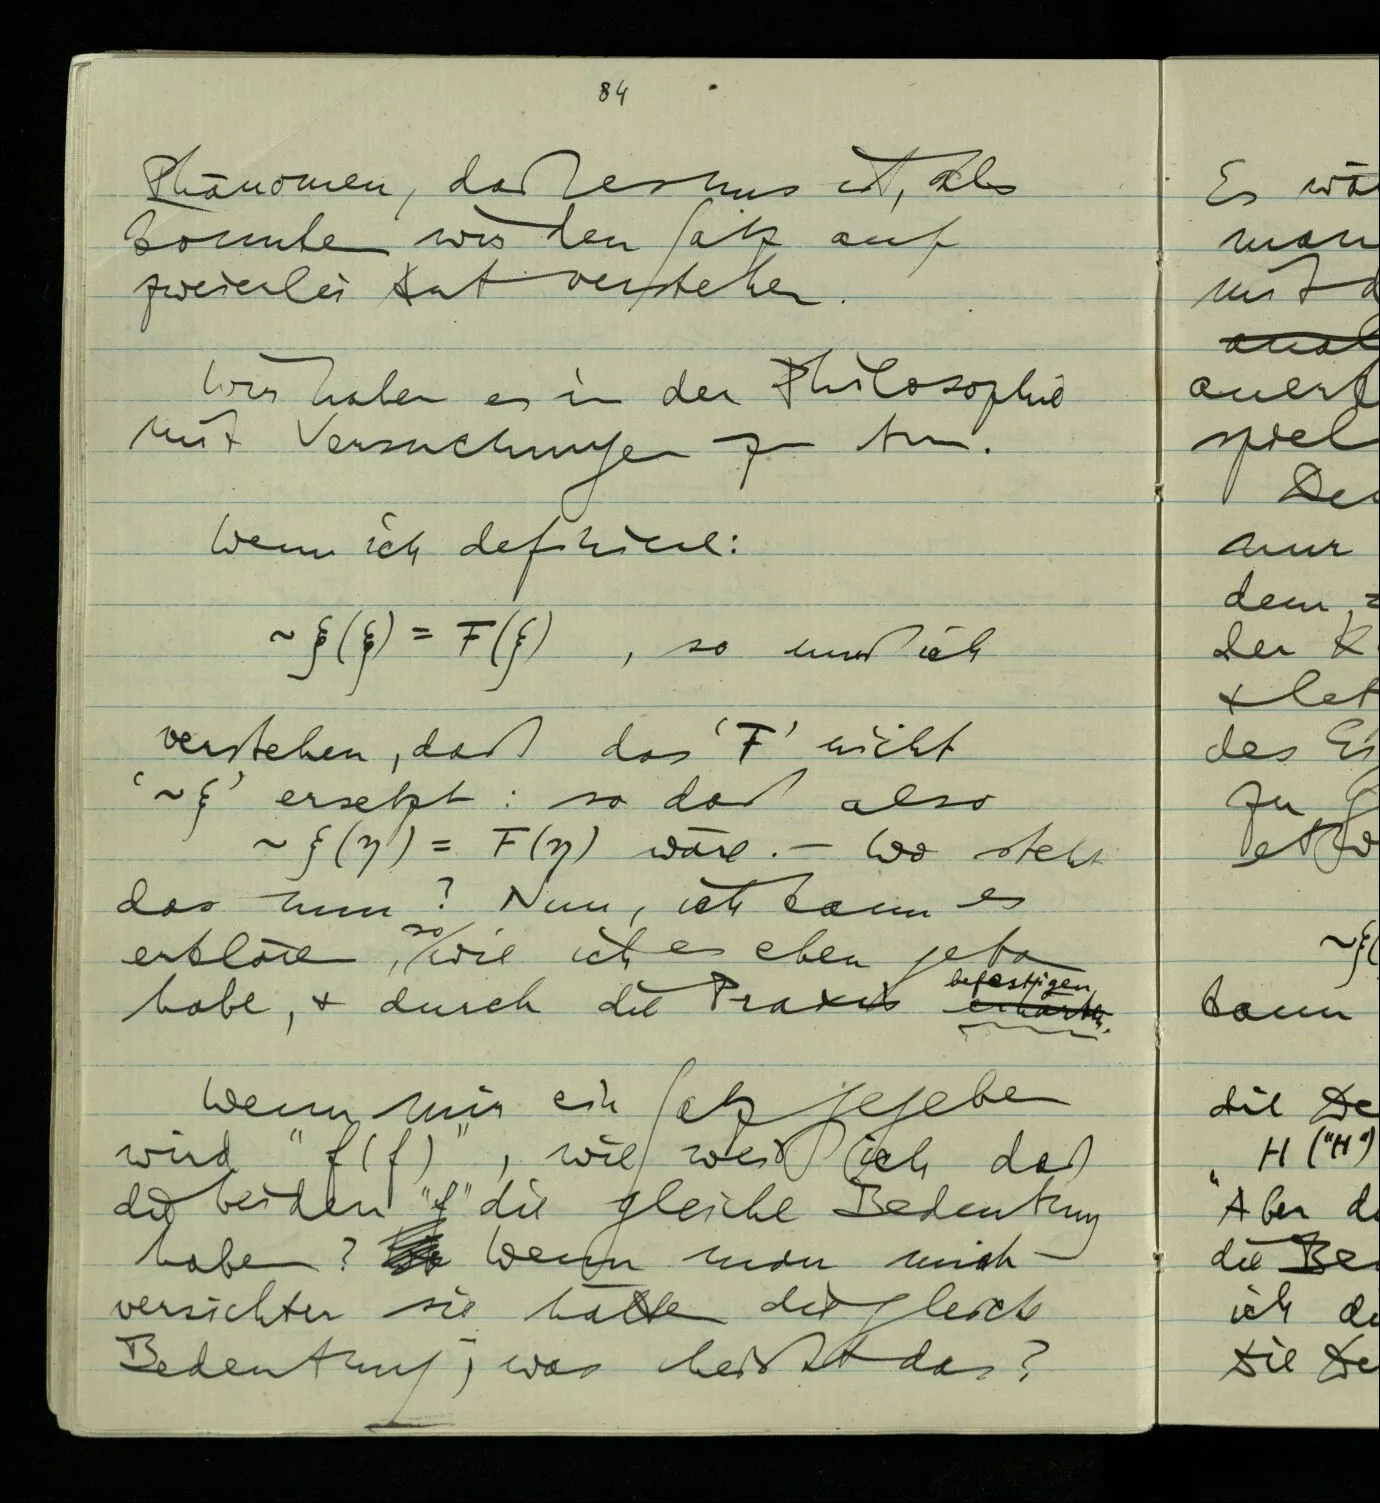 84
Phänomen, daß es uns ist, als
könnten wir den Satz auf
zweierlei Art verstehen.
Wir haben es in der Philosophie
mit Versuchungen zu tun.
Wenn ich definiere:
~ξ(ξ) = F(ξ) , so muß ich
verstehen, daß das 'F' nicht
'~ξ' ersetzt: so daß also
~ξ(η) = F(η) wäre. – Wo steht
das nun? Nun, ich kann es
erklären, so wie ich es eben getan
habe, & durch die Praxis befestigen
erhärten.
Wenn mir ein Satz gegeben
wird "f(f)", wie weiß ich daß
die beiden "f" die gleiche Bedeutung
haben? Wenn man mich
versichter sie hätten die gleiche
Bedeutung; was heißt das?
Es wä
man
mit d
anal
spiel
De
nur
dem
der K
& let
des
zu
~ξ(
kann
die De
H ("H")
"Aber d
die Be
ich d
die De